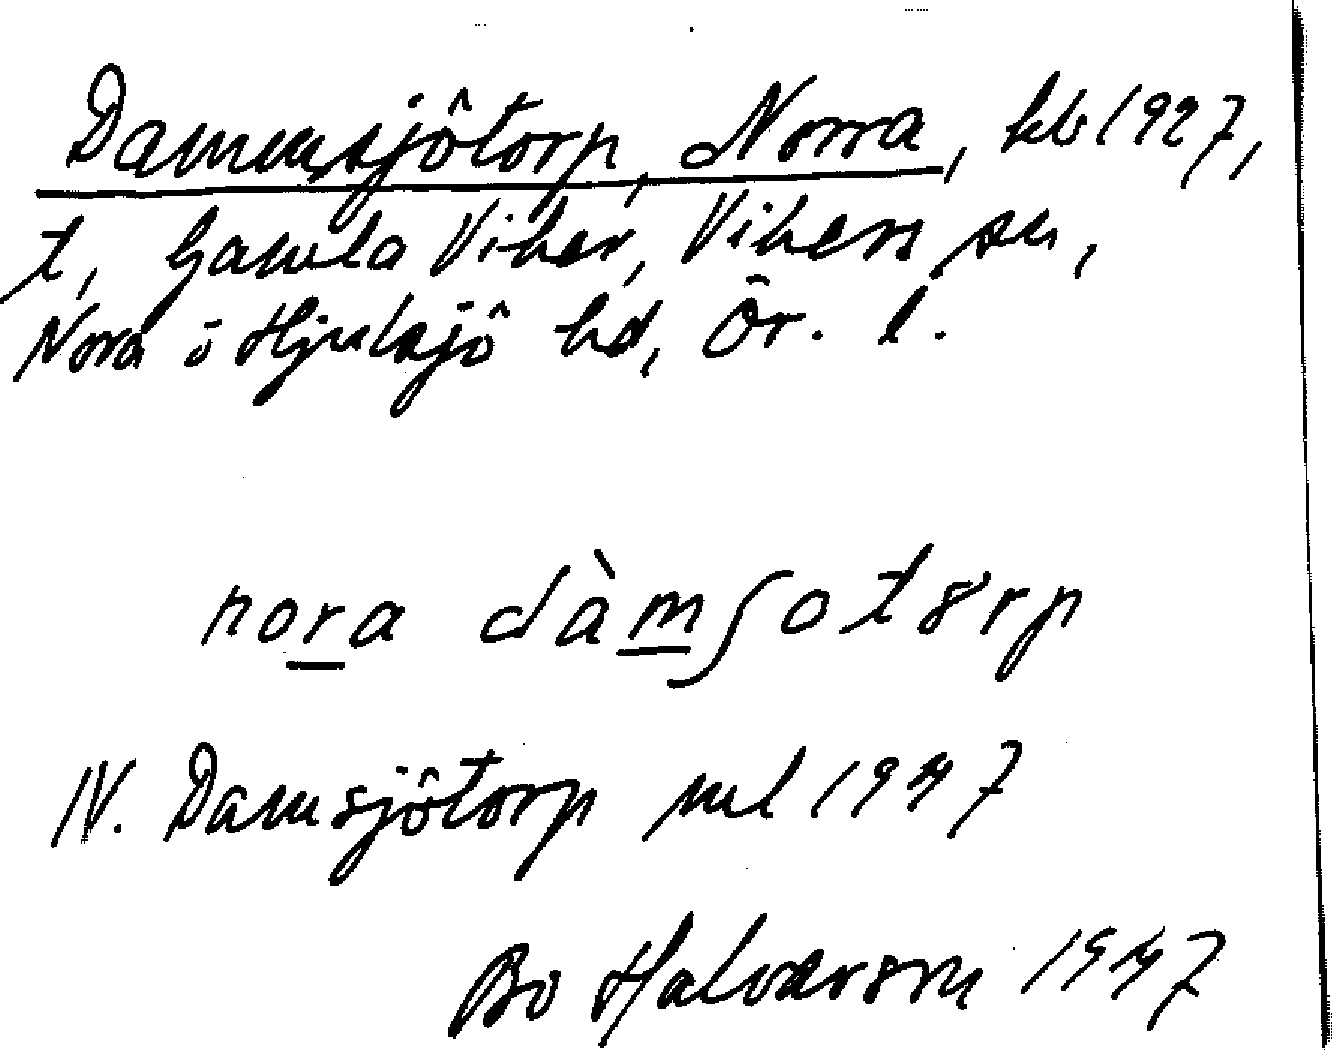 Dammsjötorp, Norra, kb 1927,
t, Gamla Viker, Vikers sn,
Nora o Hjulsjö hd, Ör. l.
nora dàmʃotɵrp
IV. Damsjötorp ml 1947
Bo Halvarson 1947